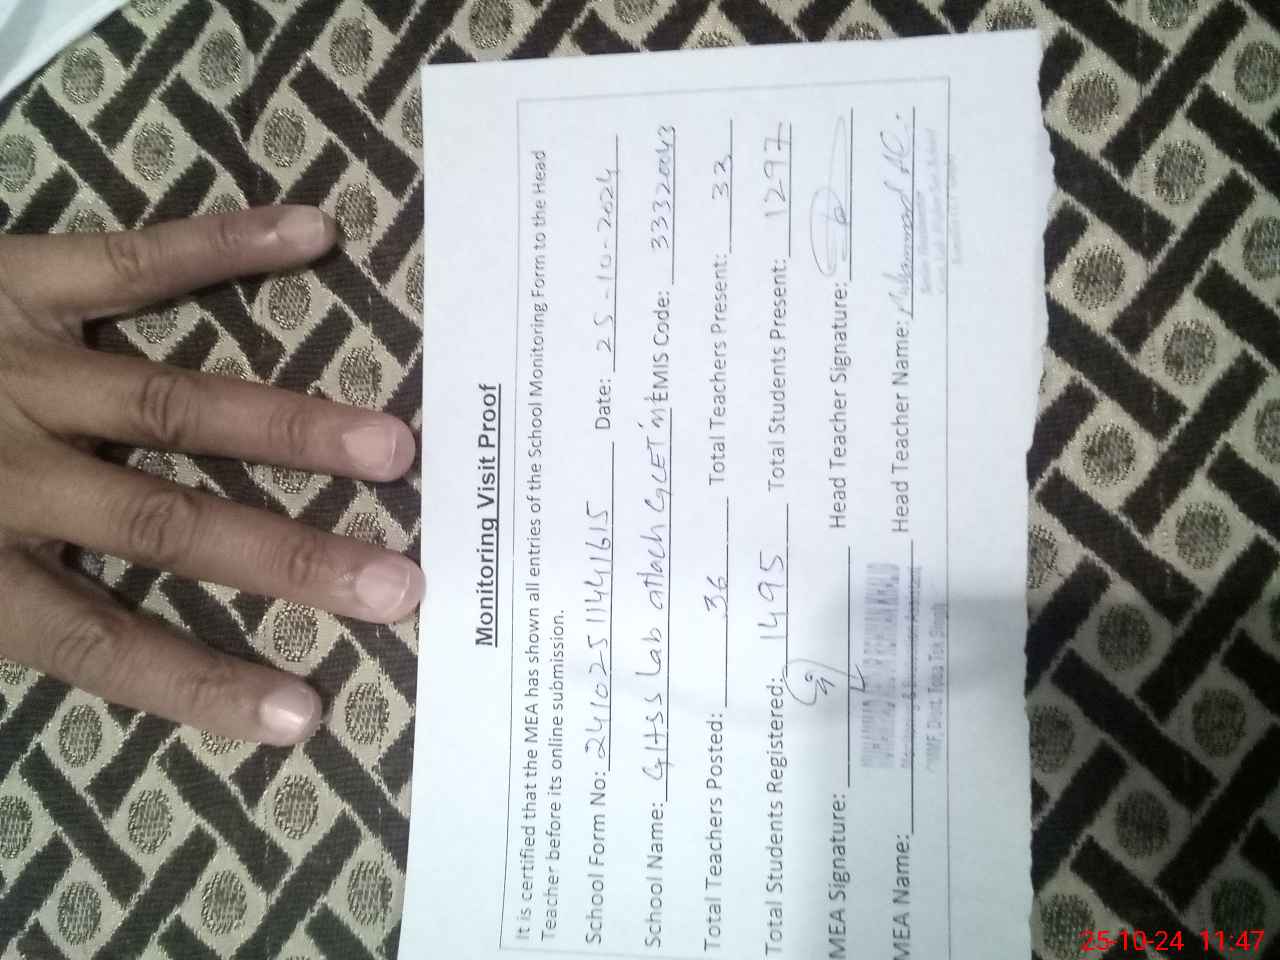 Monitoring Visit Proof
It is certified that the MEA has shown all entries of the School Monitoring Form to the Head
Teacher before its online submission.
School Form No: 24102511441615 Date: 25-10-2024
School Name: GHSS Lab attach GCET EMIS Code: 33320043
Total Teachers Posted: 36 Total Teachers Present: 33
Total Students Registered: 1495 Total Students Present: 1297
MEA Signature: Head Teacher Signature:
MEA Name: Head Teacher Name: Muhammad
Distt. Toba Tek Singh
25-10-24 11:47